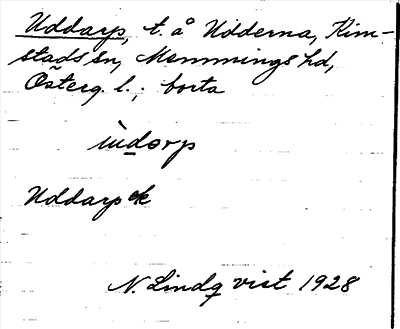 Uddarp, t. å Udderna, Kim-
stads sn, Memmings hd,
Österg. l.; borta
ùdorp
Uddarp ek
N. Lindqvist 1928